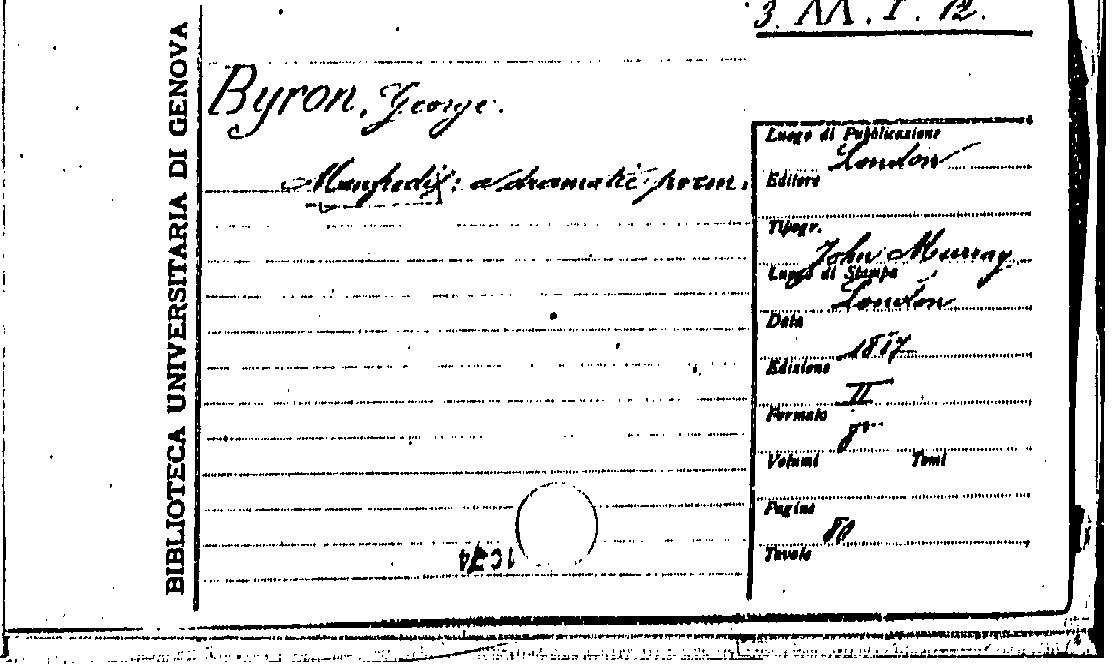 3. ΛΛ. I. 12.
BIBLIOTECA UNIVERSITARIA DI GENOVA
Byron, George.
Manfredi: a dramatic poem.
Luogo di Pubblicazione
London
Editore
Tipogr.
John Murray
Luogo di Stampa
London
Data
1817
Edizione
II
Formato
8º
Volumi Tomi
Pagine
80
Tavole